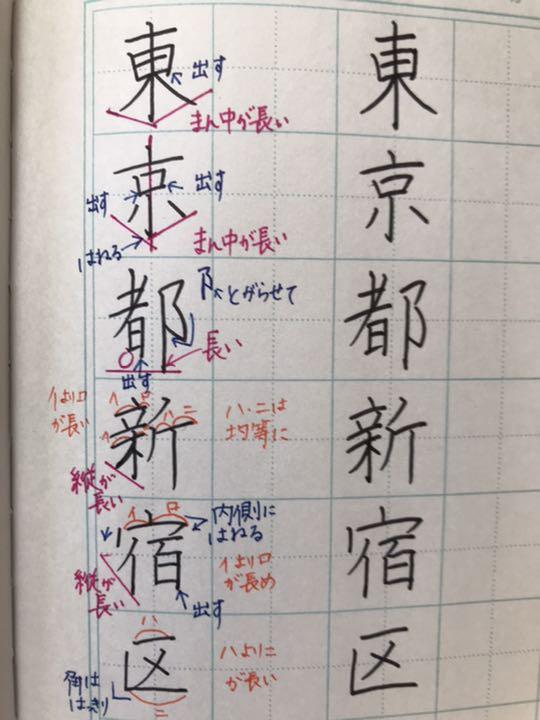 東 東
出す
まん中が長い
京 京
出す
出す
はねる
まん中が長い
都 都
とがらせて
長い
出す
新 新
イより口
が長い
イ ロ
ハ ニ
ハ・ニは
均等に
縦が
長い
宿 宿
イ ロ
内側に
はねる
イよりロ
が長め
縦が
長い
出す
区 区
ハ
ハよりニ
が長い
角は
はっきり
ニ